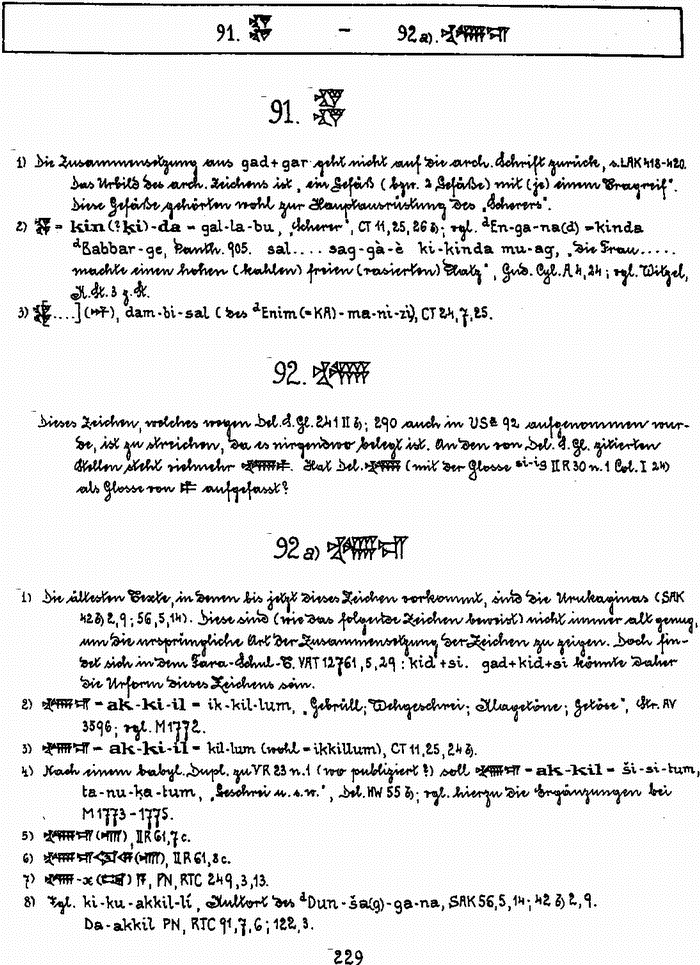 91. – 92a).
91.
1) Die Zusammensetzung aus gad+gar geht nicht auf die arch. Schrift zurück, s. LAK 418-420.
Das Urbild des arch. Zeichens ist „ein Gefäß (bzw. 2 Gefäße) mit (je) einem Tragreif“.
Diese Gefäße gehörten wohl zur Hauptausrüstung des „Scherers“.
2) = kin(?ki)-da = gal-la-bu, „Scherer“, CT 11,25,26b; vgl. ᵈEn-ga-na(d) = kinda
ᵈBabbar-ge, Panth. 905. sal.... sag-gà-è ki-kinda mu-ag, „die Frau.....
machte einen hohen (kahlen) freien (rasierten) Platz“, Gud. Cyl. A 4,24; vgl. Witzel,
K. St. 3 z. St.
3) ....] (), dam-bi-sal (des ᵈEnim(=KA)-ma-ni-zi), CT 24,7,25.
92.
Dieses Zeichen, welches wegen Del. S. Gl. 241 II b; 290 auch in 92 aufgenommen wur-
de, ist zu streichen, da es nirgendwo belegt ist. An den von Del. S. Gl. zitierten
Stellen steht vielmehr . Hat Del. (mit der Glosse si-ig II R 30 n. 1 Col. I 24)
als Glosse von aufgefasst?
92a)
1) Die ältesten Texte, in denen bis jetzt dieses Zeichen vorkommt, sind die Urukaginas (SAK
42b) 2,9; 56,5,14). Diese sind (wie das folgende Zeichen beweist) nicht immer alt genug,
um die ursprüngliche Art der Zusammensetzung der Zeichen zu zeigen. Doch fin-
det sich in dem Fara-Schul-T. VAT 12761,5,29: kid+si. gad+kid+si könnte daher
die Urform dieses Zeichens sein.
2) = ak-ki-il = ik-kil-lum, „Gebrüll; Wehgeschrei; Klagetöne; Getöse“, Str. AV
3596; vgl. M 1772.
3) = ak-ki-il = kil-lum (wohl = ikkillum), CT 11,25,24b.
4) Nach einem babyl. Dupl. zu VR 23 n. 1 (wo publiziert?) soll = ak-kil = ši-si-tum,
ta-nu-ḳa-tum, „Geschrei u.s.w.“, Del. HW 55b; vgl. hierzu die Ergänzungen bei
M 1773-1775.
5) (), II R 61,7c.
6) (), II R 61,8c.
7) -x () , PN, RTC 249,3,13.
8) Vgl. ki-ku-akkil-lí, Kultort des ᵈDun-ša(g)-ga-na, SAK 56,5,14; 42b) 2,9.
Da-akkil PN, RTC 91,7,6; 122,3.
229